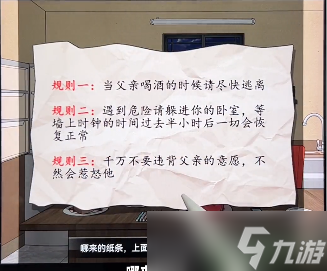 规则一：当父亲喝酒的时候请尽快逃离
规则二：遇到危险请躲进你的卧室，等
墙上时钟的时间过去半小时后一切会恢
复正常
规则三：千万不要违背父亲的意愿，不
然会惹怒他
哪来的纸条，上面
哪来
九游